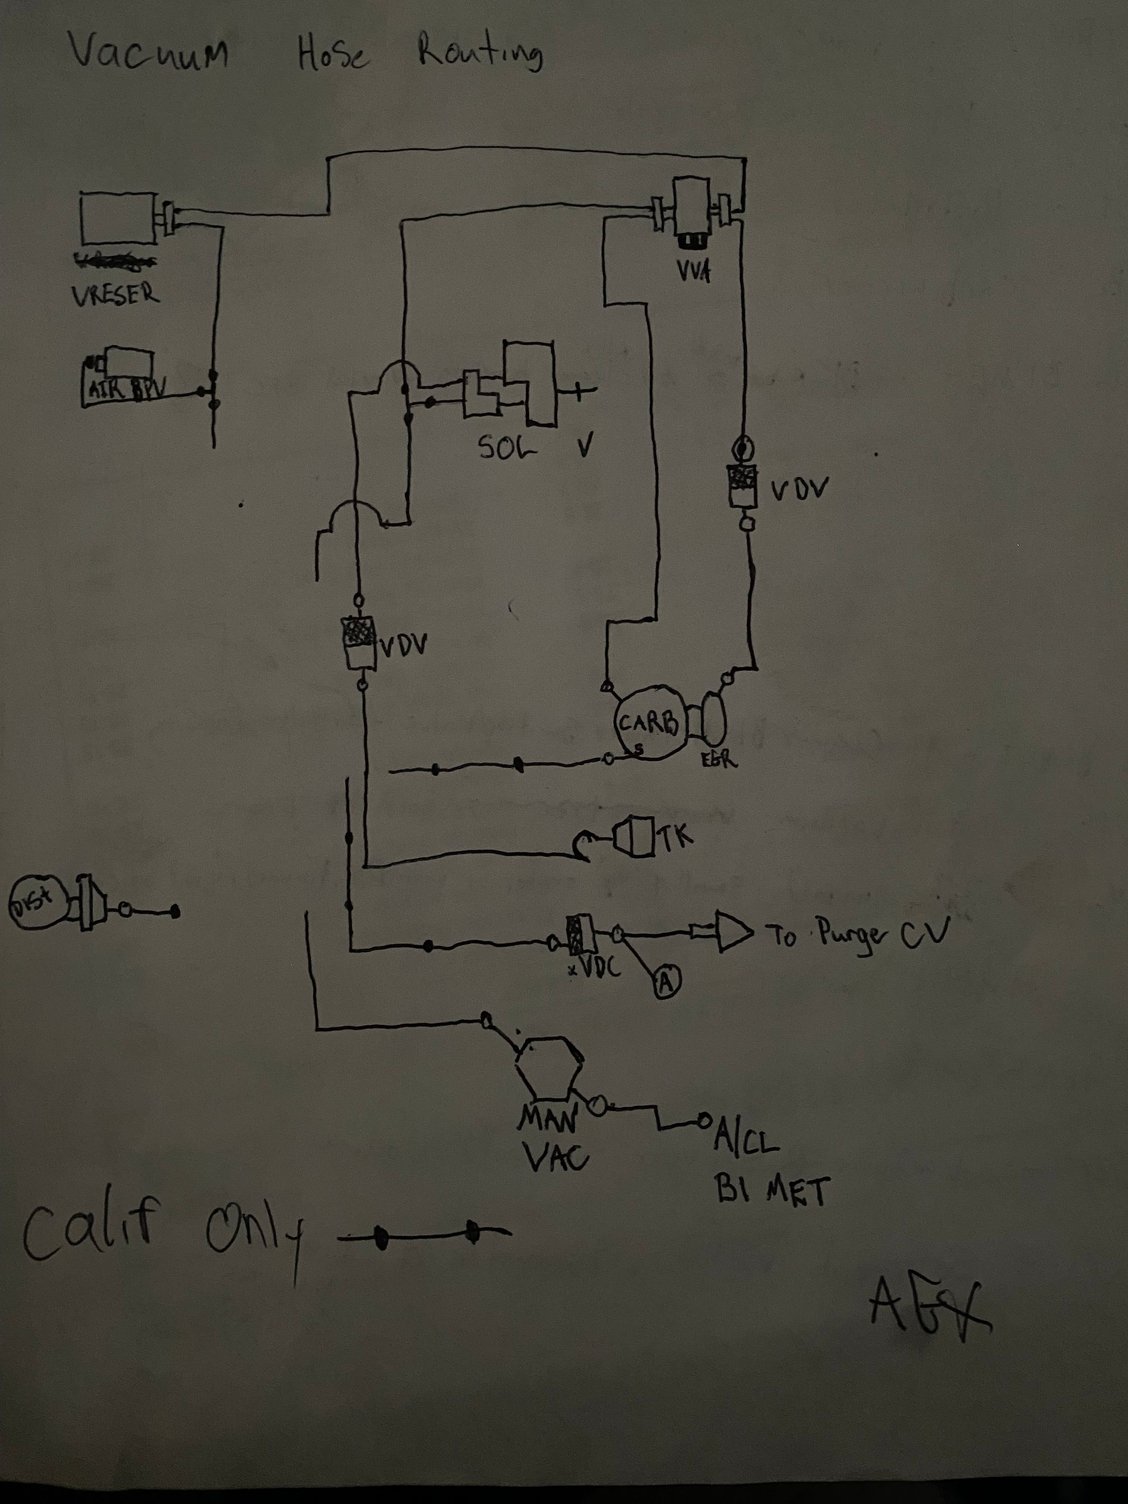 Vacuum Hose Routing
VVA
VRESER
AIR BPV
SOL V
VDV
VDV
CARB
S
EGR
TK
DIST
To Purge CV
xVDC
A
MAN
VAC
A/CL
BI MET
Calif Only
AEX